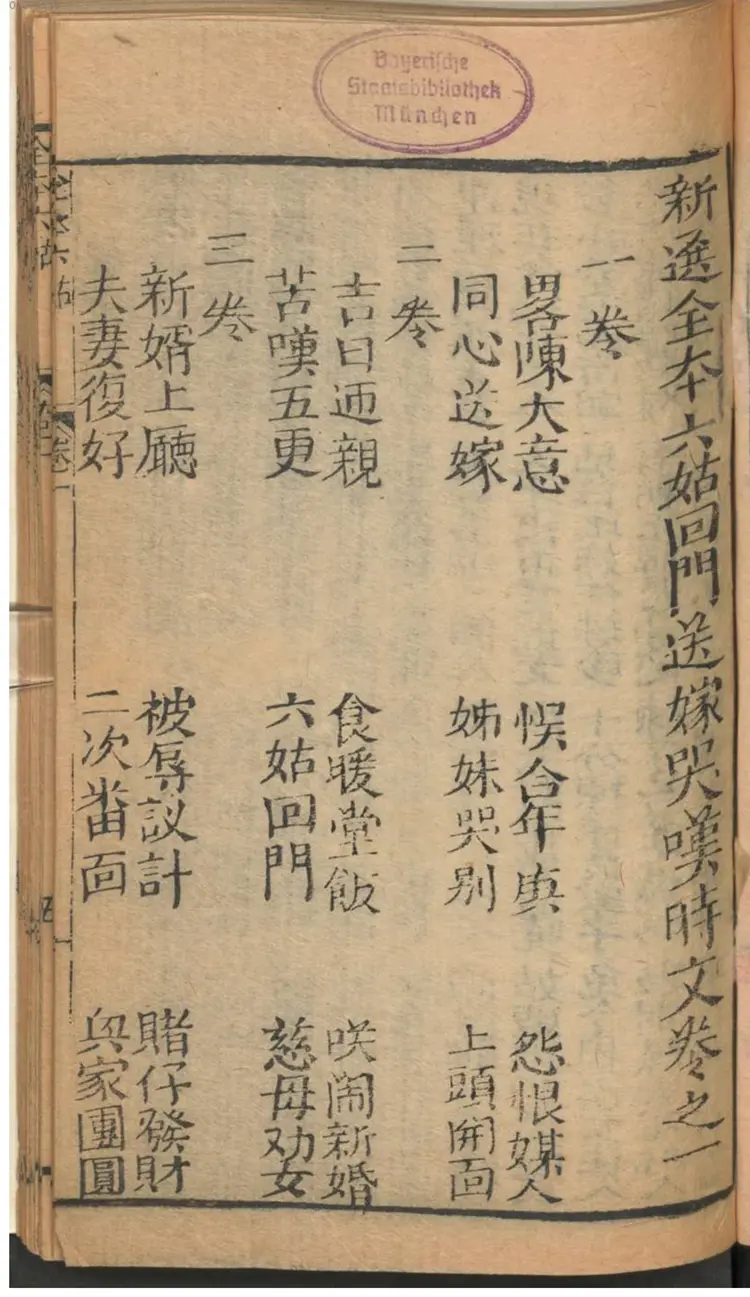 Bayerische
Staatsbibliothek
München
新選全本六姑回門送嫁哭嘆時文卷之一
一卷
畧陳大意 悞合年庚 怨恨媒人
同心送嫁 姊妹哭别 上頭開面
二卷
吉日迊親 食暖堂飯 咲鬧新婚
苦嘆五更 六姑回門 慈母劝女
三卷
新婿上廳 被辱議計 賭仔發財
夫妻復好 二次畨面 與家團圓